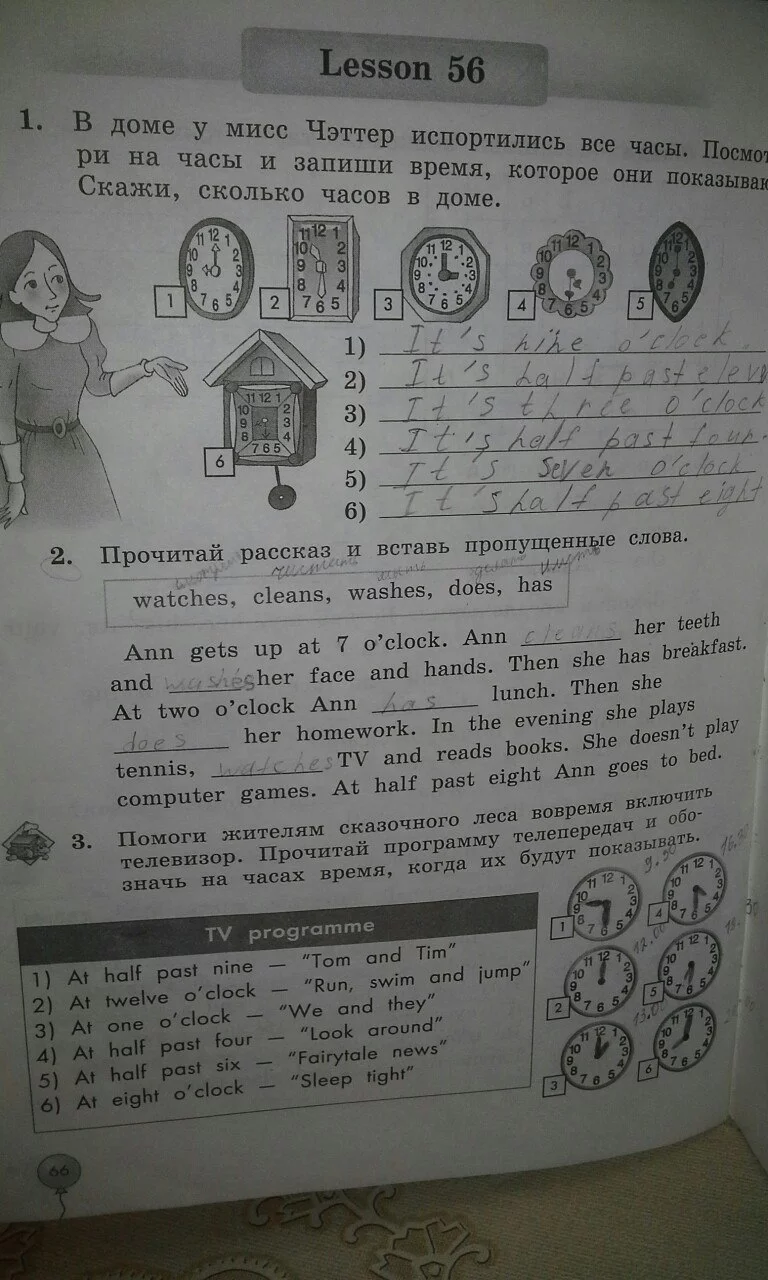 Lesson 56
1. В доме у мисс Чэттер испортились все часы. Посмот
ри на часы и запиши время, которое они показываю
Скажи, сколько часов в доме.
1 2 3 4 5
1) It's nine o'clock.
2) It's half past elev
3) It's three o'clock
4) It's half past four.
5) It's seven o'clock
6) It's half past eight
6
2. Прочитай рассказ и вставь пропущенные слова.
чистить делать иметь
watches, cleans, washes, does, has
Ann gets up at 7 o'clock. Ann cleans her teeth
and washes her face and hands. Then she has breakfast.
At two o'clock Ann has lunch. Then she
does her homework. In the evening she plays
tennis, watches TV and reads books. She doesn't play
computer games. At half past eight Ann goes to bed.
3. Помоги жителям сказочного леса вовремя включить
телевизор. Прочитай программу телепередач и обо-
значь на часах время, когда их будут показывать.
TV programme
1) At half past nine — "Tom and Tim"
2) At twelve o'clock — "Run, swim and jump"
3) At one o'clock — "We and they"
4) At half past four — "Look around"
5) At half past six — "Fairytale news"
6) At eight o'clock — "Sleep tight"
9.30 16.30
1 4
12.00
2 5
13.00
3 6
66